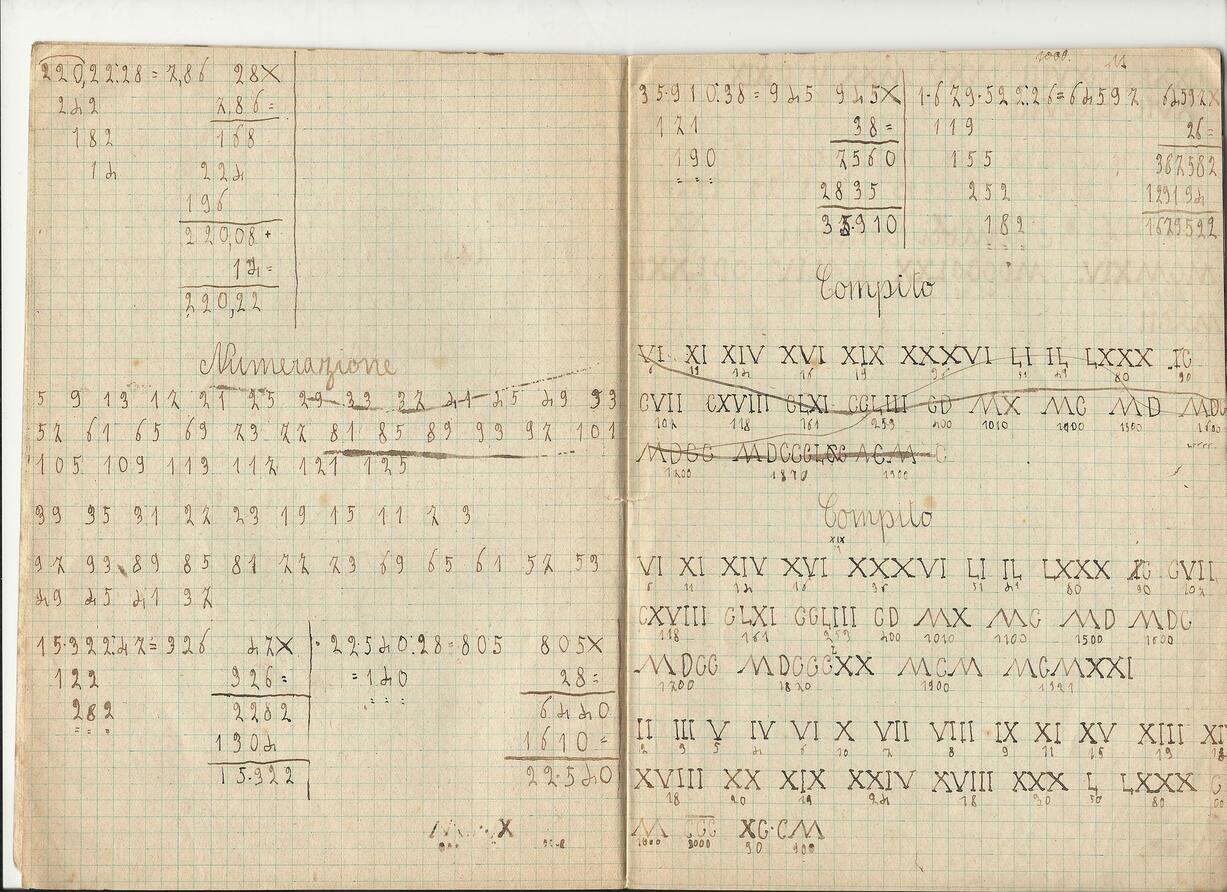 220,22:28 = 7,86 28X
242 7,86=
182 168
14 224
196
220,08+
14=
220,22
Numerazione
5 9 13 17 21 25 29 33 37 41 45 49 53
57 61 65 69 73 77 81 85 89 93 97 101
105 109 113 117 121 125
39 35 31 27 23 19 15 11 7 3
97 93 89 85 81 77 73 69 65 61 57 53
49 45 41 37
15.322:47= 326 47X
122 326=
282 2282
1304
15.322
22540:28=805 805X
=140 28=
6440
1610=
22.540
35.910:38=945 945X
171 38=
190 7560
2835
35.910
1.679.522:26=64597 64597X
119 26=
155 387582
252 129194
182 1679522
Compito
VI XI XIV XVI XIX XXXVI LI IL LXXX IC
6 11 14 16 19 36 51 49 80 90
CVII CXVIII CLXI CCLIII CD MX MC MD MDC
107 118 161 253 400 1010 1100 1500 1600
MDCC
1700 1870 1900
Compito
XIX
VI XI XIV XVI XXXVI LI IL LXXX XC CVII
6 11 14 16 36 51 49 80 90 107
CXVIII CLXI CCLIII CD MX MC MD MDC
118 161 253 400 1010 1100 1500 1600
MDCC MDCCCXX MCM MCMXXI
1700 1820 1900 1921
II III V IV VI X VII VIII IX XI XV XIII XI
2 3 5 4 6 10 7 8 9 11 15 13
XVIII XX XIX XXIV XVIII XXX L LXXX C
18 20 19 24 18 30 50 80
M CCC XC CM
1000 3000 90 900